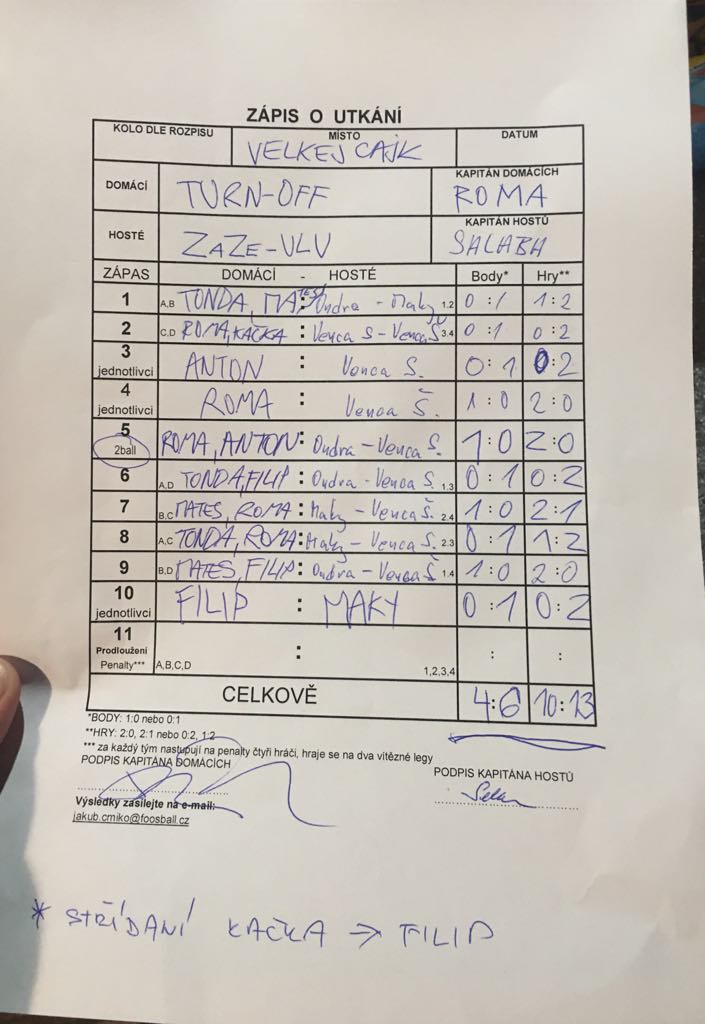 ZÁPIS O UTKÁNÍ
KOLO DLE ROZPISU MÍSTO DATUM
VELKEJ CAJK
DOMÁCÍ TURN-OFF KAPITÁN DOMÁCÍCH ROMA
HOSTÉ ZAZE-VLV KAPITÁN HOSTŮ SALABA
ZÁPAS DOMÁCÍ - HOSTÉ Body* Hry**
1 A,B TONDA, MATES : Ondra - Maky 1.2 0 : 1 1 : 2
2 C,D ROMA, KAČKA : Venca S - Venca Š 3.4 0 : 1 0 : 2
3 jednotlivci ANTON : Venca S. 0 : 1 0 : 2
4 jednotlivci ROMA Venca Š. 1 : 0 2 : 0
5 2ball ROMA, ANTON : Ondra - Venca S. 1 : 0 2 : 0
6 A.D TONDA, FILIP : Ondra - Venca S. 1.3 0 : 1 0 : 2
7 B.C MATES, ROMA : Maky - Venca Š. 2.4 1 : 0 2 : 1
8 A,C TONDA, ROMA : Maky - Venca S. 2.3 0 : 1 1 : 2
9 B.D MATES, FILIP : Ondra - Venca Š 1.4 1 : 0 2 : 0
10 jednotlivci FILIP : MAKY 0 : 1 0 : 2
11 Prodloužení Penalty*** A,B,C,D : 1,2,3,4 : :
CELKOVĚ 4 : 6 10 : 13
*BODY: 1:0 nebo 0:1
**HRY: 2:0, 2:1 nebo 0:2, 1:2
*** za každý tým nastupují na penalty čtyři hráči, hraje se na dva vítězné legy
PODPIS KAPITÁNA DOMÁCÍCH PODPIS KAPITÁNA HOSTŮ
Výsledky zasílejte na e-mail:
jakub.cmiko@foosball.cz
* STŘÍDANÍ KAČKA → FILIP